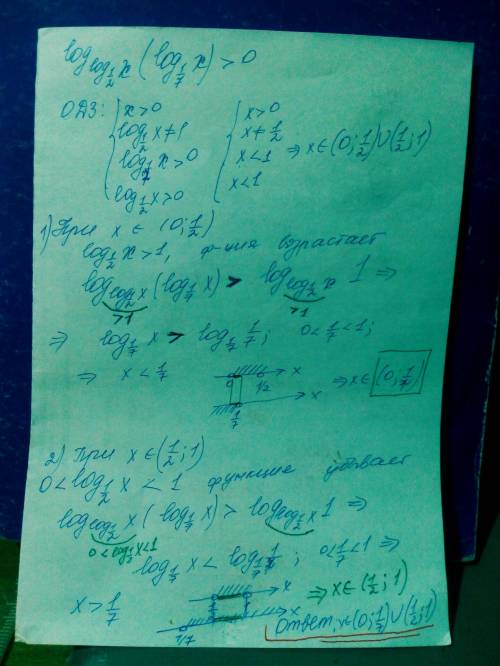 log_{log_{1/2} x} (log_{1/7} x) > 0
ОДЗ: { x>0 { x>0
log_{1/2} x ≠ 1 x ≠ 1/2 ⇒ x ∈ (0; 1/2) ∪ (1/2; 1)
log_{1/7} x > 0 x < 1
log_{1/2} x > 0 x < 1
1) При x ∈ (0; 1/2)
log_{1/2} x > 1, ф-ция возрастает
log_{log_{1/2} x} (log_{1/7} x) > log_{log_{1/2} x} 1 ⇒
>1 >1
⇒ log_{1/7} x > log_{1/7} 1/7; 0 < 1/7 < 1;
⇒ x < 1/7 0 1/2 x ⇒ x ∈ (0; 1/7)
1/7 x
2) При x ∈ (1/2; 1)
0 < log_{1/2} x < 1 функция убывает
log_{log_{1/2} x} (log_{1/7} x) > log_{log_{1/2} x} 1 ⇒
0 < log_{1/2} x < 1
log_{1/7} x < log_{1/7} 1/7; 0 < 1/7 < 1 ⇒
x > 1/7 x ⇒ x ∈ (1/2; 1)
1/7 x Ответ: x ∈ (0; 1/7) ∪ (1/2; 1)